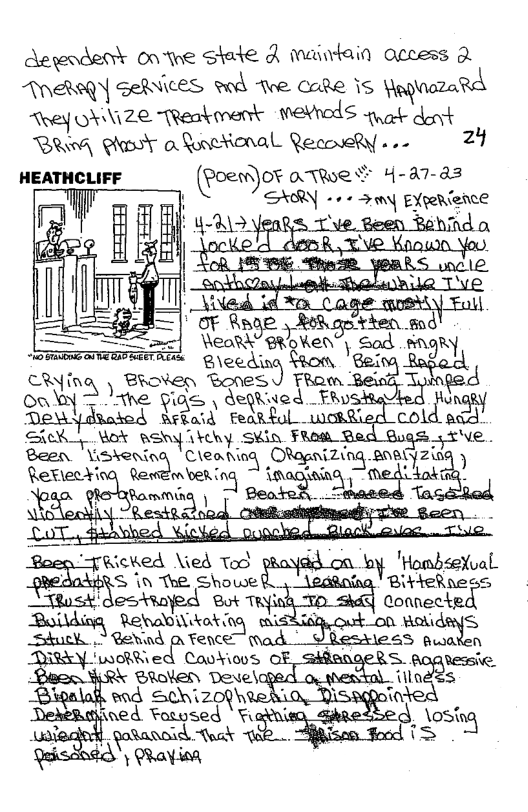 dependent on the state 2 maintain access 2
THERAPY SERVICES AND The CARE is HAPHAZARD
They UTILIZE TREATMENT methods that dont
BRing About a functional Recovery...
24
HEATHCLIFF
(Poem) OF a TRUE!!! 4-27-23
Story ... → my Experience
"NO STANDING ON THE RAP SHEET, PLEASE
4-21 → years I've Been Behind a
locked door, I've Known You
for years uncle
Anthony while I've
lived in a cage mostly full
OF RAge, forgotten and
Heart Broken, Sad Angry
Bleeding from Being Raped
CRying, BROKEN Bones FRom Being Jumped
on by The pigs, deprived Frustrated Hungry
DeHydrated AFRAID Fearful worried Cold And
Sick, Hot Ashy itchy skin FROM Bed Bugs, I've
Been listening Cleaning Organizing Analyzing,
Reflecting Remembering imagining, meditating
Yoga programming, Beaten maced Tasered
Violently Restrained I've Been
CUT, Stabbed Kicked punched Black eyes I've
Been TRicked lied Too' prayed on by 'Hombsexual
predators in The Shower, learning Bitterness
Trust destroyed But TRYing To Stay Connected
Building Rehabilitating missing out on Holidays
Stuck Behind a Fence mad Restless Awaken
Dirty worried Cautious of strangers Aggressive
Been HURT Broken Developed a mental illness
Bipolar and Schizophrenia, Disappointed
Determined Focused Figthing stressed losing
wieght paranoid That the Prison Food is
poisoned, praying